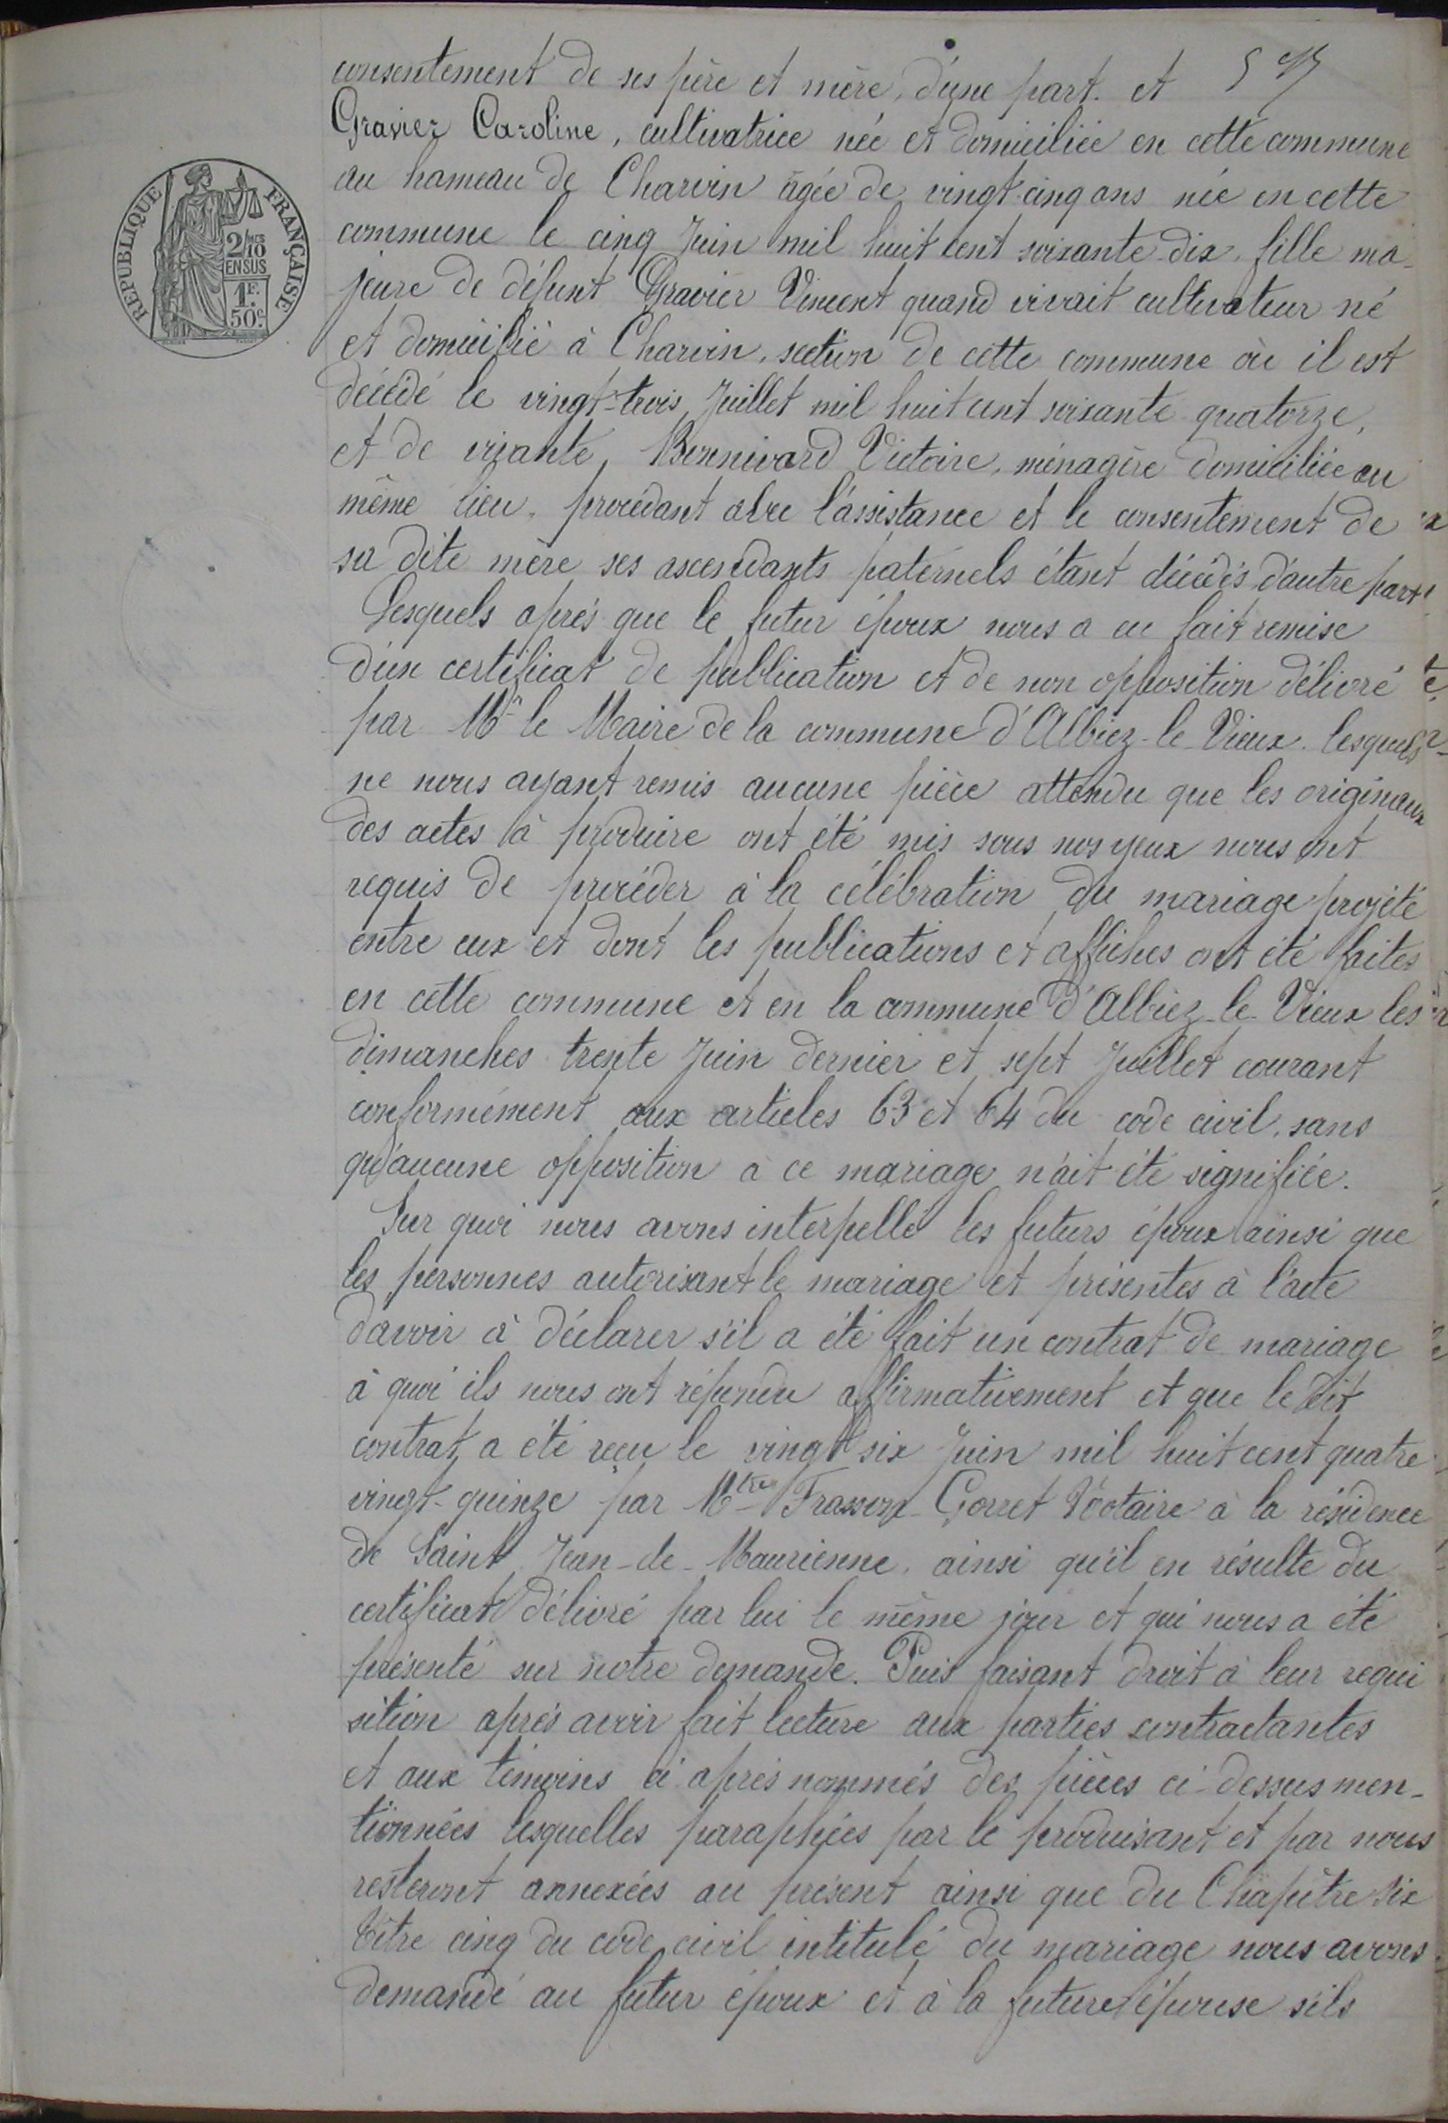 consentement de ses père et mère, d'une part. et
Gravier Caroline, cultivatrice née et domiciliée en cette commune
au hameau de Charvin âgée de vingt-cinq ans née en cette
commune le cinq Juin mil huit cent soixante-dix, fille ma-
jeure de défunt Gravier Vincent quand vivait cultivateur né
et domicilié à Charvin, section de cette commune où il est
décédé le vingt-trois Juillet mil huit cent soixante quatorze,
et de vivante, Bonnivard Victoire, ménagère domiciliée au
même lieu, procédant avec l'assistance et le consentement de
sa dite mère ses ascendants paternels étant décédés d'autre part
Lesquels après que le futur époux nous a eu fait remise
d'un certificat de publication et de non opposition délivré
par Mr le Maire de la commune d'Albiez-le-Vieux. lesquels
ne nous ayant remis aucune pièce attendu que les originaux
des actes à produire ont été mis sous nos yeux nous ont
requis de procéder à la célébration du mariage projeté
entre eux et dont les publications et affiches ont été faites
en cette commune et en la commune d'Albiez-le-Vieux les
dimanches trente Juin dernier et sept Juillet courant
conformément aux articles 63 et 64 du code civil, sans
qu'aucune opposition à ce mariage n'ait été signifiée.
Sur quoi nous avons interpellé les futurs époux ainsi que
les personnes autorisant le mariage et présentes à l'acte
d'avoir à déclarer s'il a été fait un contrat de mariage
à quoi ils nous ont répondu affirmativement et que le dit
contrat a été reçu le vingt six Juin mil huit cent quatre
vingt-quinze par Mtre Frasson-Gorret Notaire à la résidence
de Saint Jean-de-Maurienne, ainsi qu'il en résulte du
certificat délivré par lui le même jour et qui nous a été
présenté sur notre demande. Puis faisant droit à leur requi
sition après avoir fait lecture aux parties contractantes
et aux témoins ci après nommés des pièces ci-dessus men-
tionnées lesquelles paraphées par le produisant et par nous
resteront annexées au présent ainsi que du Chapitre six
titre cinq du code civil intitulé du mariage nous avons
demandé au futur époux et à la future épouse s'ils
RÉPUBLIQUE FRANÇAISE
2/10
EN SUS
1F.
50c.